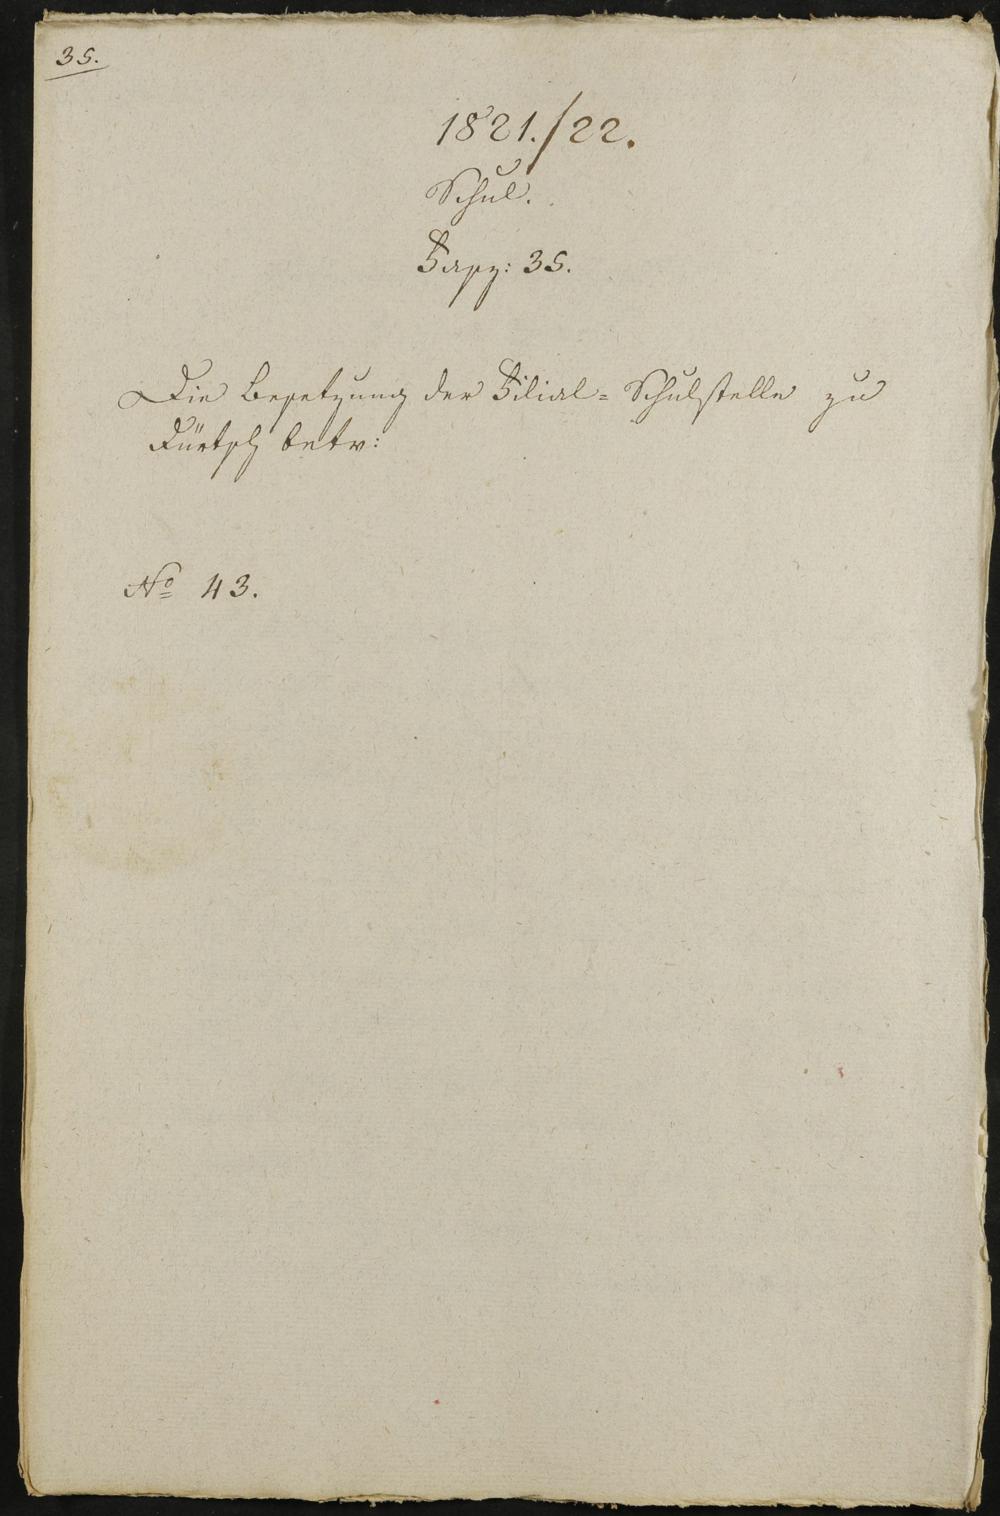 35.
1821./22.
Schul.
Fasz: 35.
Die Besetzung der Filial-Schulstelle zu
betr:
No 43.